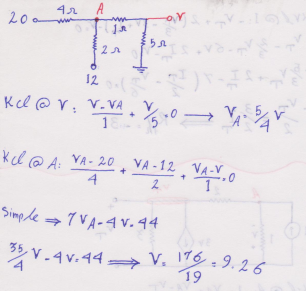 20 4Ω A 1Ω V
2Ω 5Ω
12
KCL @ V: (V-VA)/1 + V/5 = 0 → VA = 5/4 V
KCL @ A: (VA-20)/4 + (VA-12)/2 + (VA-V)/1 = 0
Simple ⇒ 7VA - 4V = 44
35/4 V - 4V = 44 ⇒ V = 176/19 = 9.26